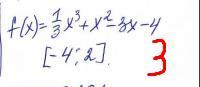 f(x)=1/3x³+x²-3x-4
[-4; 2].
3